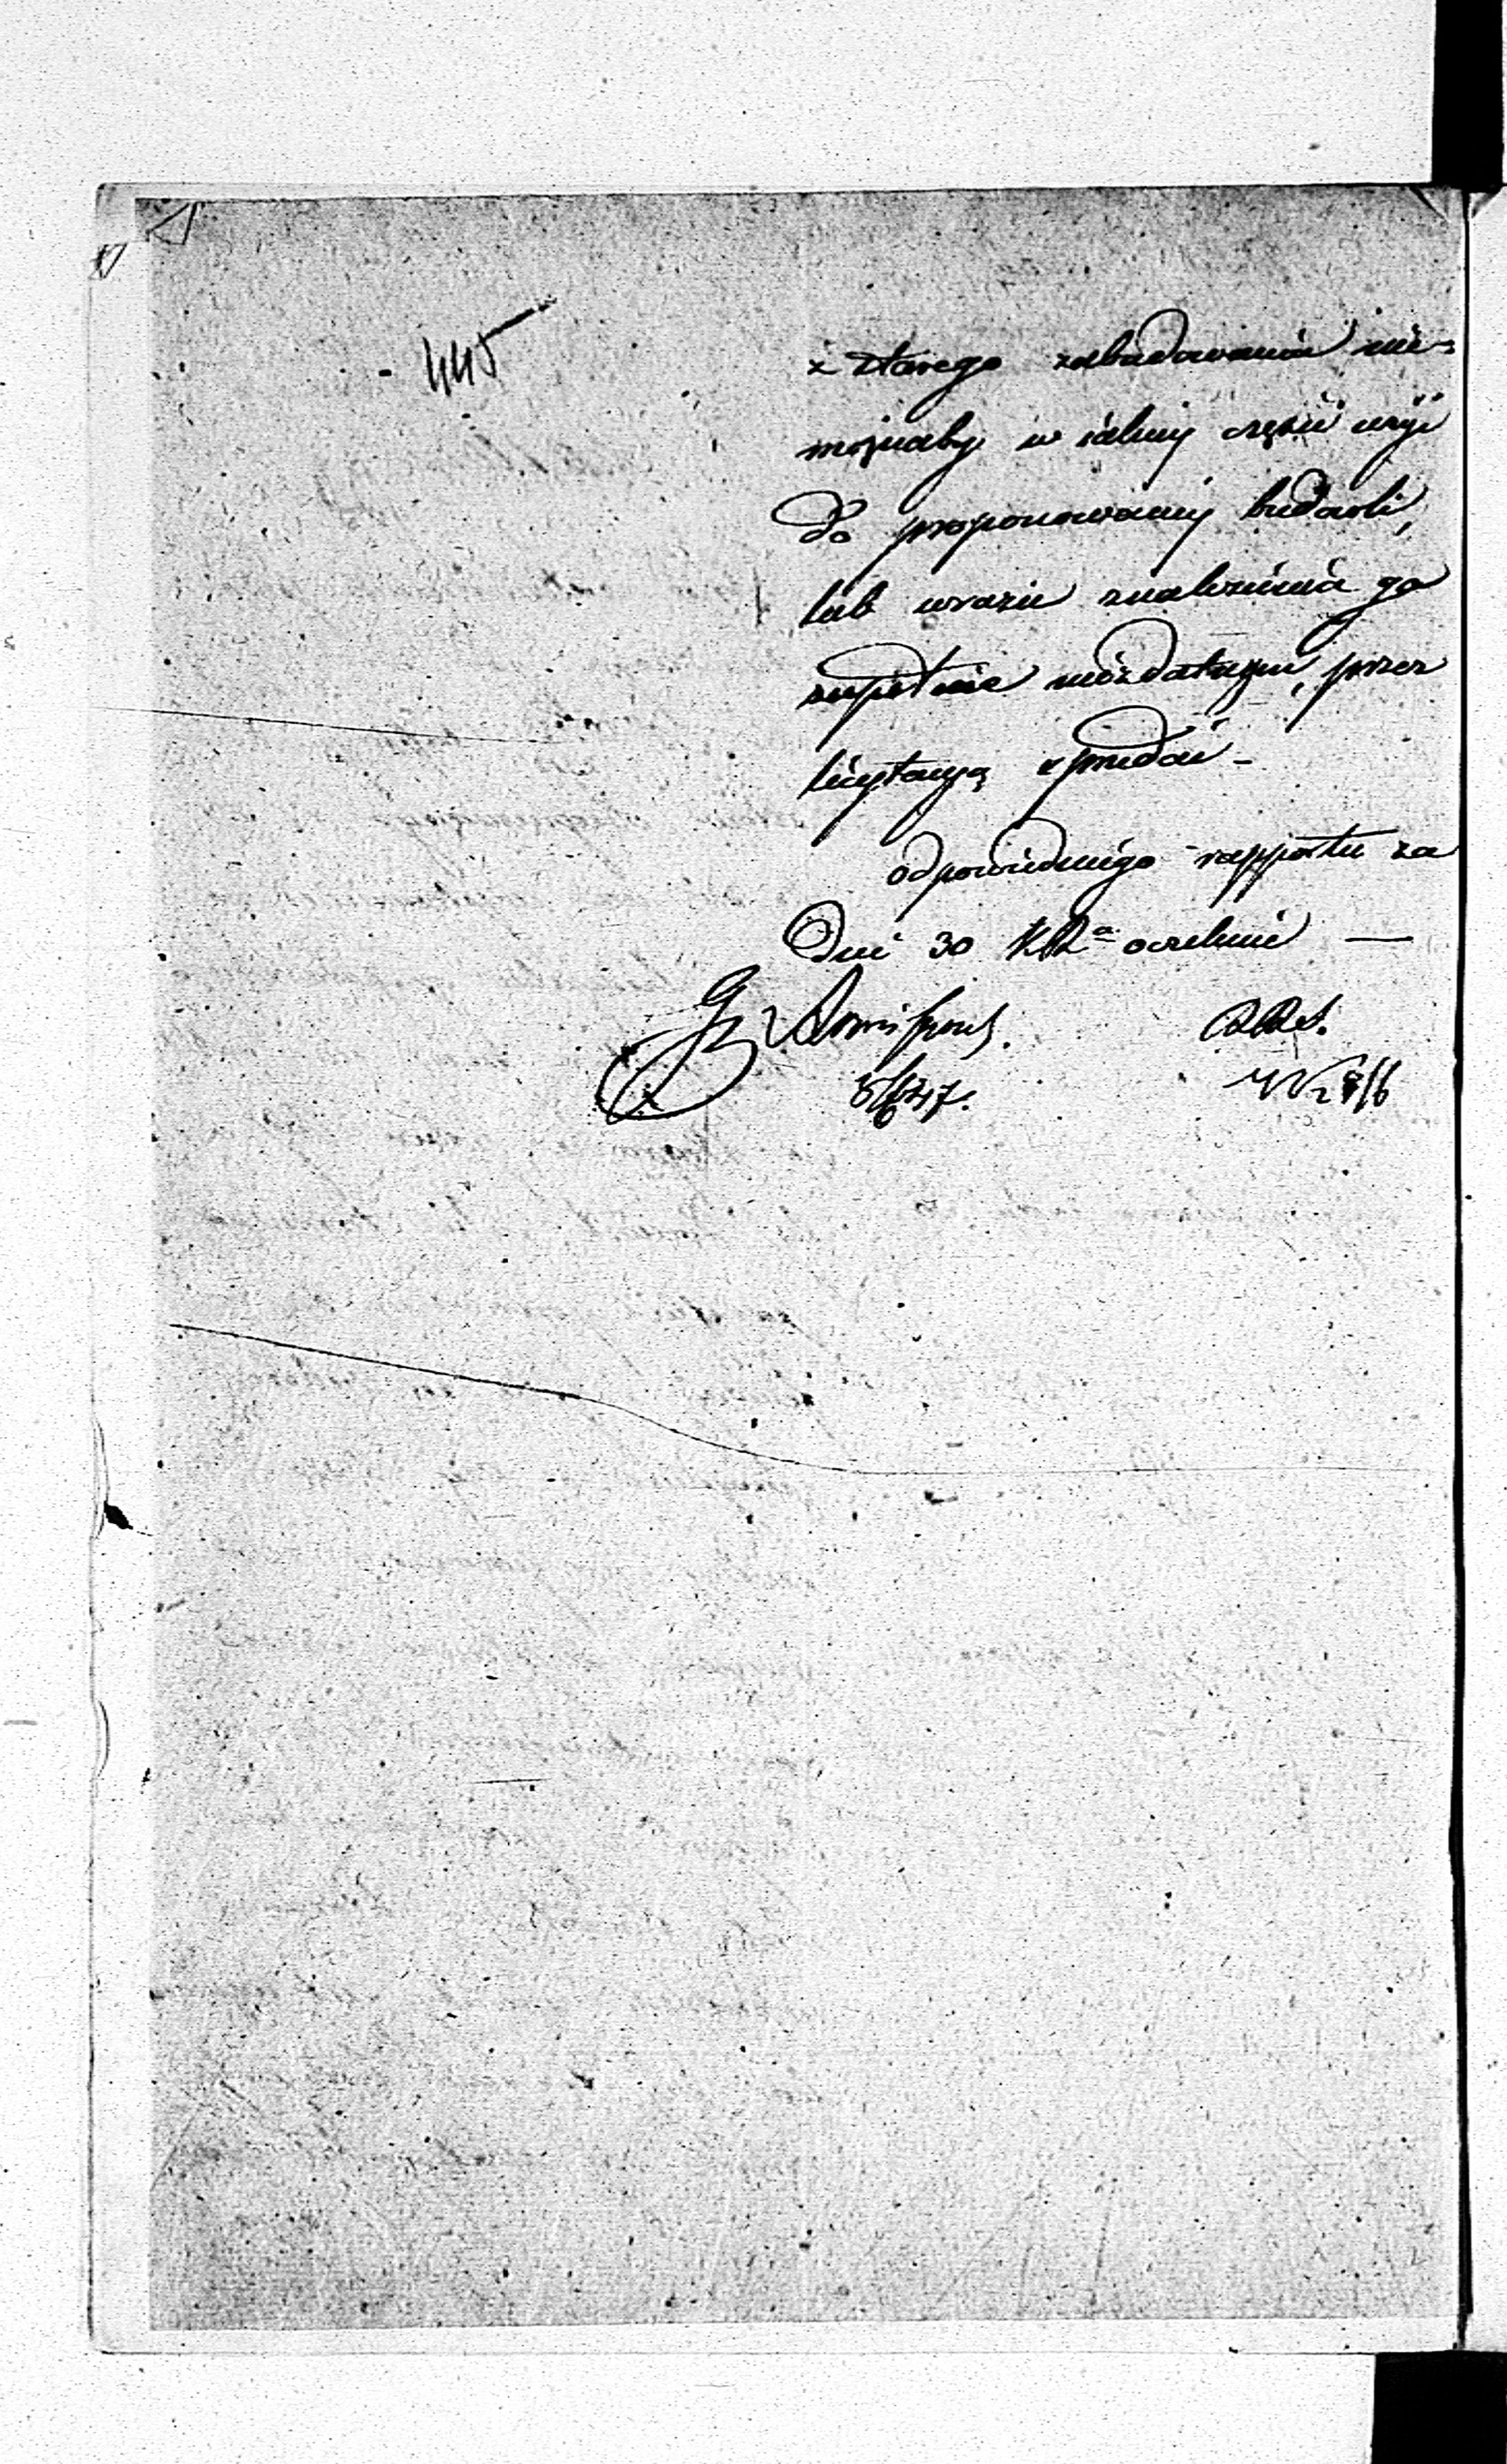 445
z starego zabudowania nie-
możnaby w całej części użyć
do proponowaney budowli,
lub w razie znalezienia go
zupełnie niezdatnym, przez
licytacyą sprzedać -
odpowiedniego rapportu za
Dni 30 oczekuie —